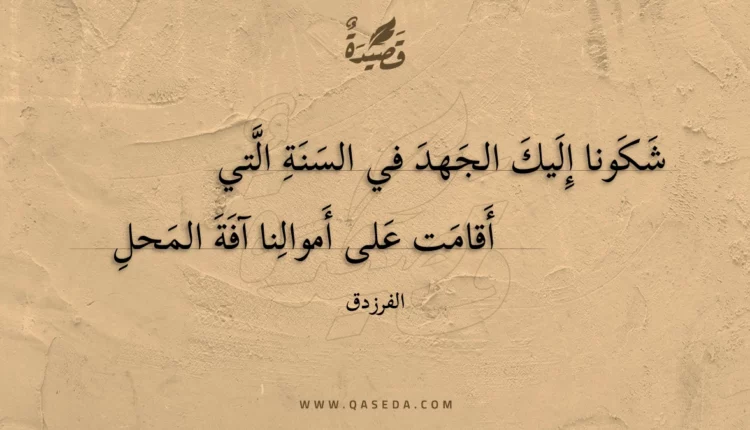 قَصِيْدَةٌ
شَكَونا إِلَيكَ الجَهدَ في السَنَةِ الَّتي
أَقامَت عَلى أَموالِنا آفَةَ المَحلِ
الفرزدق
WWW.QASEDA.COM